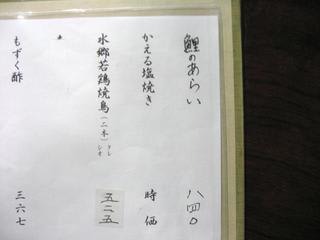 鯉のあらい 八四〇
かえる塩焼き 時価
水郷若鶏焼鳥(二本)タレ シオ 五二五
もずく酢 三六七